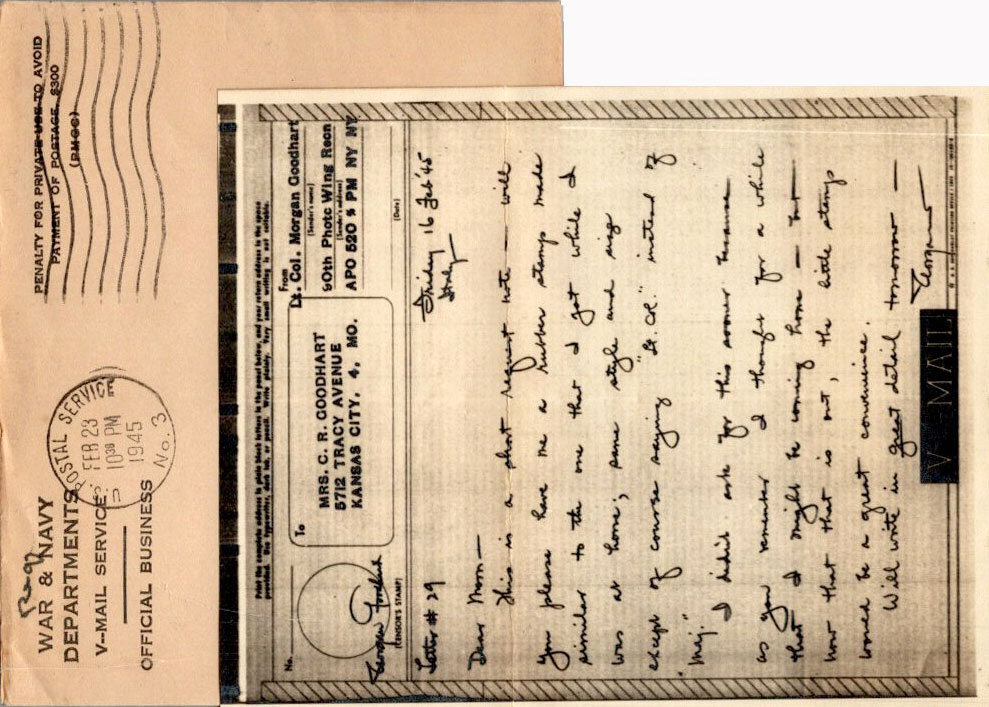 PENALTY FOR PRIVATE USE TO AVOID
PAYMENT OF POSTAGE, $300
(PMGC)
POSTAL SERVICE
FEB 23
10 30 PM
1945
No. 3
WAR & NAVY
DEPARTMENTS
V-MAIL SERVICE
OFFICIAL BUSINESS
Print the complete address in plain block letters in the panel below, and your return address in the space
provided. Use typewriter, dark ink, or pencil. Write plainly. Very small writing is not suitable.
No.
To
MRS. C. R. GOODHART
5712 TRACY AVENUE
KANSAS CITY, 4, MO.
From
Lt. Col. Morgan Goodhart
(Sender's name)
90th Photo Wing Recn
(Sender's address)
APO 520 % PM NY NY
(Date)
(CENSOR'S STAMP)
Letter # 29
Friday 16 Feb '45
Italy
Dear Mom —
This is a short request note — will
you please have me a rubber stamp made
similar to the one that I got while I
was at home, same style and size
except of course saying "Lt. Col." instead of
"Maj."
I didn't ask for this sooner because
as you remember I thought for a while
that I might be coming home — but
now that that is out, the little stamp
would be a great convenience.
Will write in great detail tomorrow —
Morgan
V-MAIL